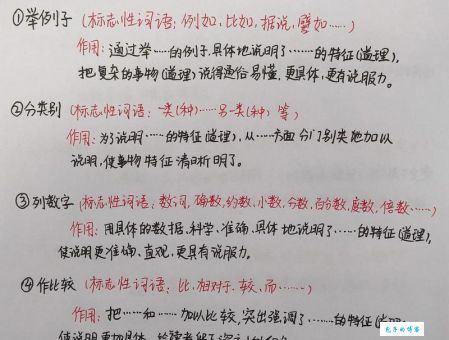 ①举例子(标志性词语:例如,比如,据说,譬如……)
作用:通过举……的例子,具体地说明了……的特征(道理),
把复杂的事物(道理)说得通俗易懂,更具体,更有说服力。
②分类别(标志性词语:一类(种)……另一类(种)等)
作用:为了说明……的特征(道理),从……方面分门别类地加以
说明,使事物特征清晰明了。
③列数字(标志性词语:数词,确数,约数,小数,分数,百分数,度数,倍数……)
作用:用具体的数据,科学、准确、具体地说明了……的特征(道理),
使说明更准确、直观,更具有说服力。
④作比较(标志性词语:比,相对于、较、而……)
作用:把……和……加以比较,突出强调了……的特征
使说明更加具体
包子的博客